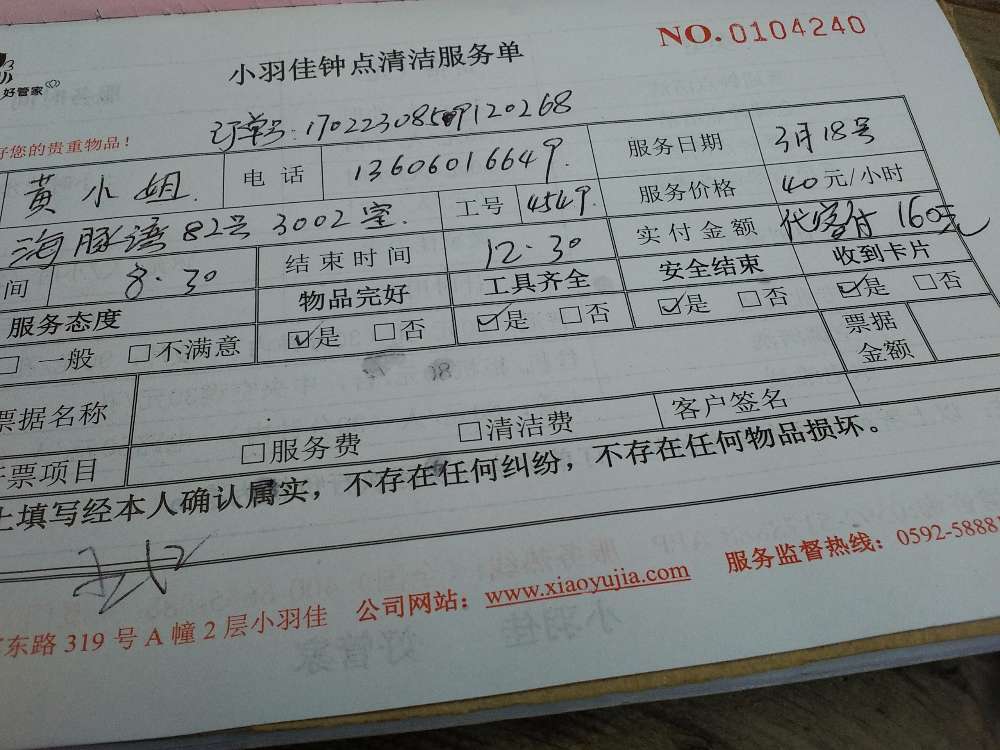 NO.0104240
小羽佳钟点清洁服务单
好管家
订单号:17022308509120268
好您的贵重物品!
黄小姐 电话 13606016649 服务日期 3月18号
海豚湾82号3002室 工号 4549 服务价格 40元/小时
间 8:30 结束时间 12:30 实付金额 代客付 160元
服务态度 物品完好 工具齐全 安全结束 收到卡片
□一般 □不满意 ☑是 □否 ☑是 □否 ☑是 □否 ☑是 □否
票据名称 票据金额
票项目 □服务费 □清洁费 客户签名
上填写经本人确认属实,不存在任何纠纷,不存在任何物品损坏。
东路319号A幢2层小羽佳 公司网站:www.xiaoyujia.com 服务监督热线:0592-5888